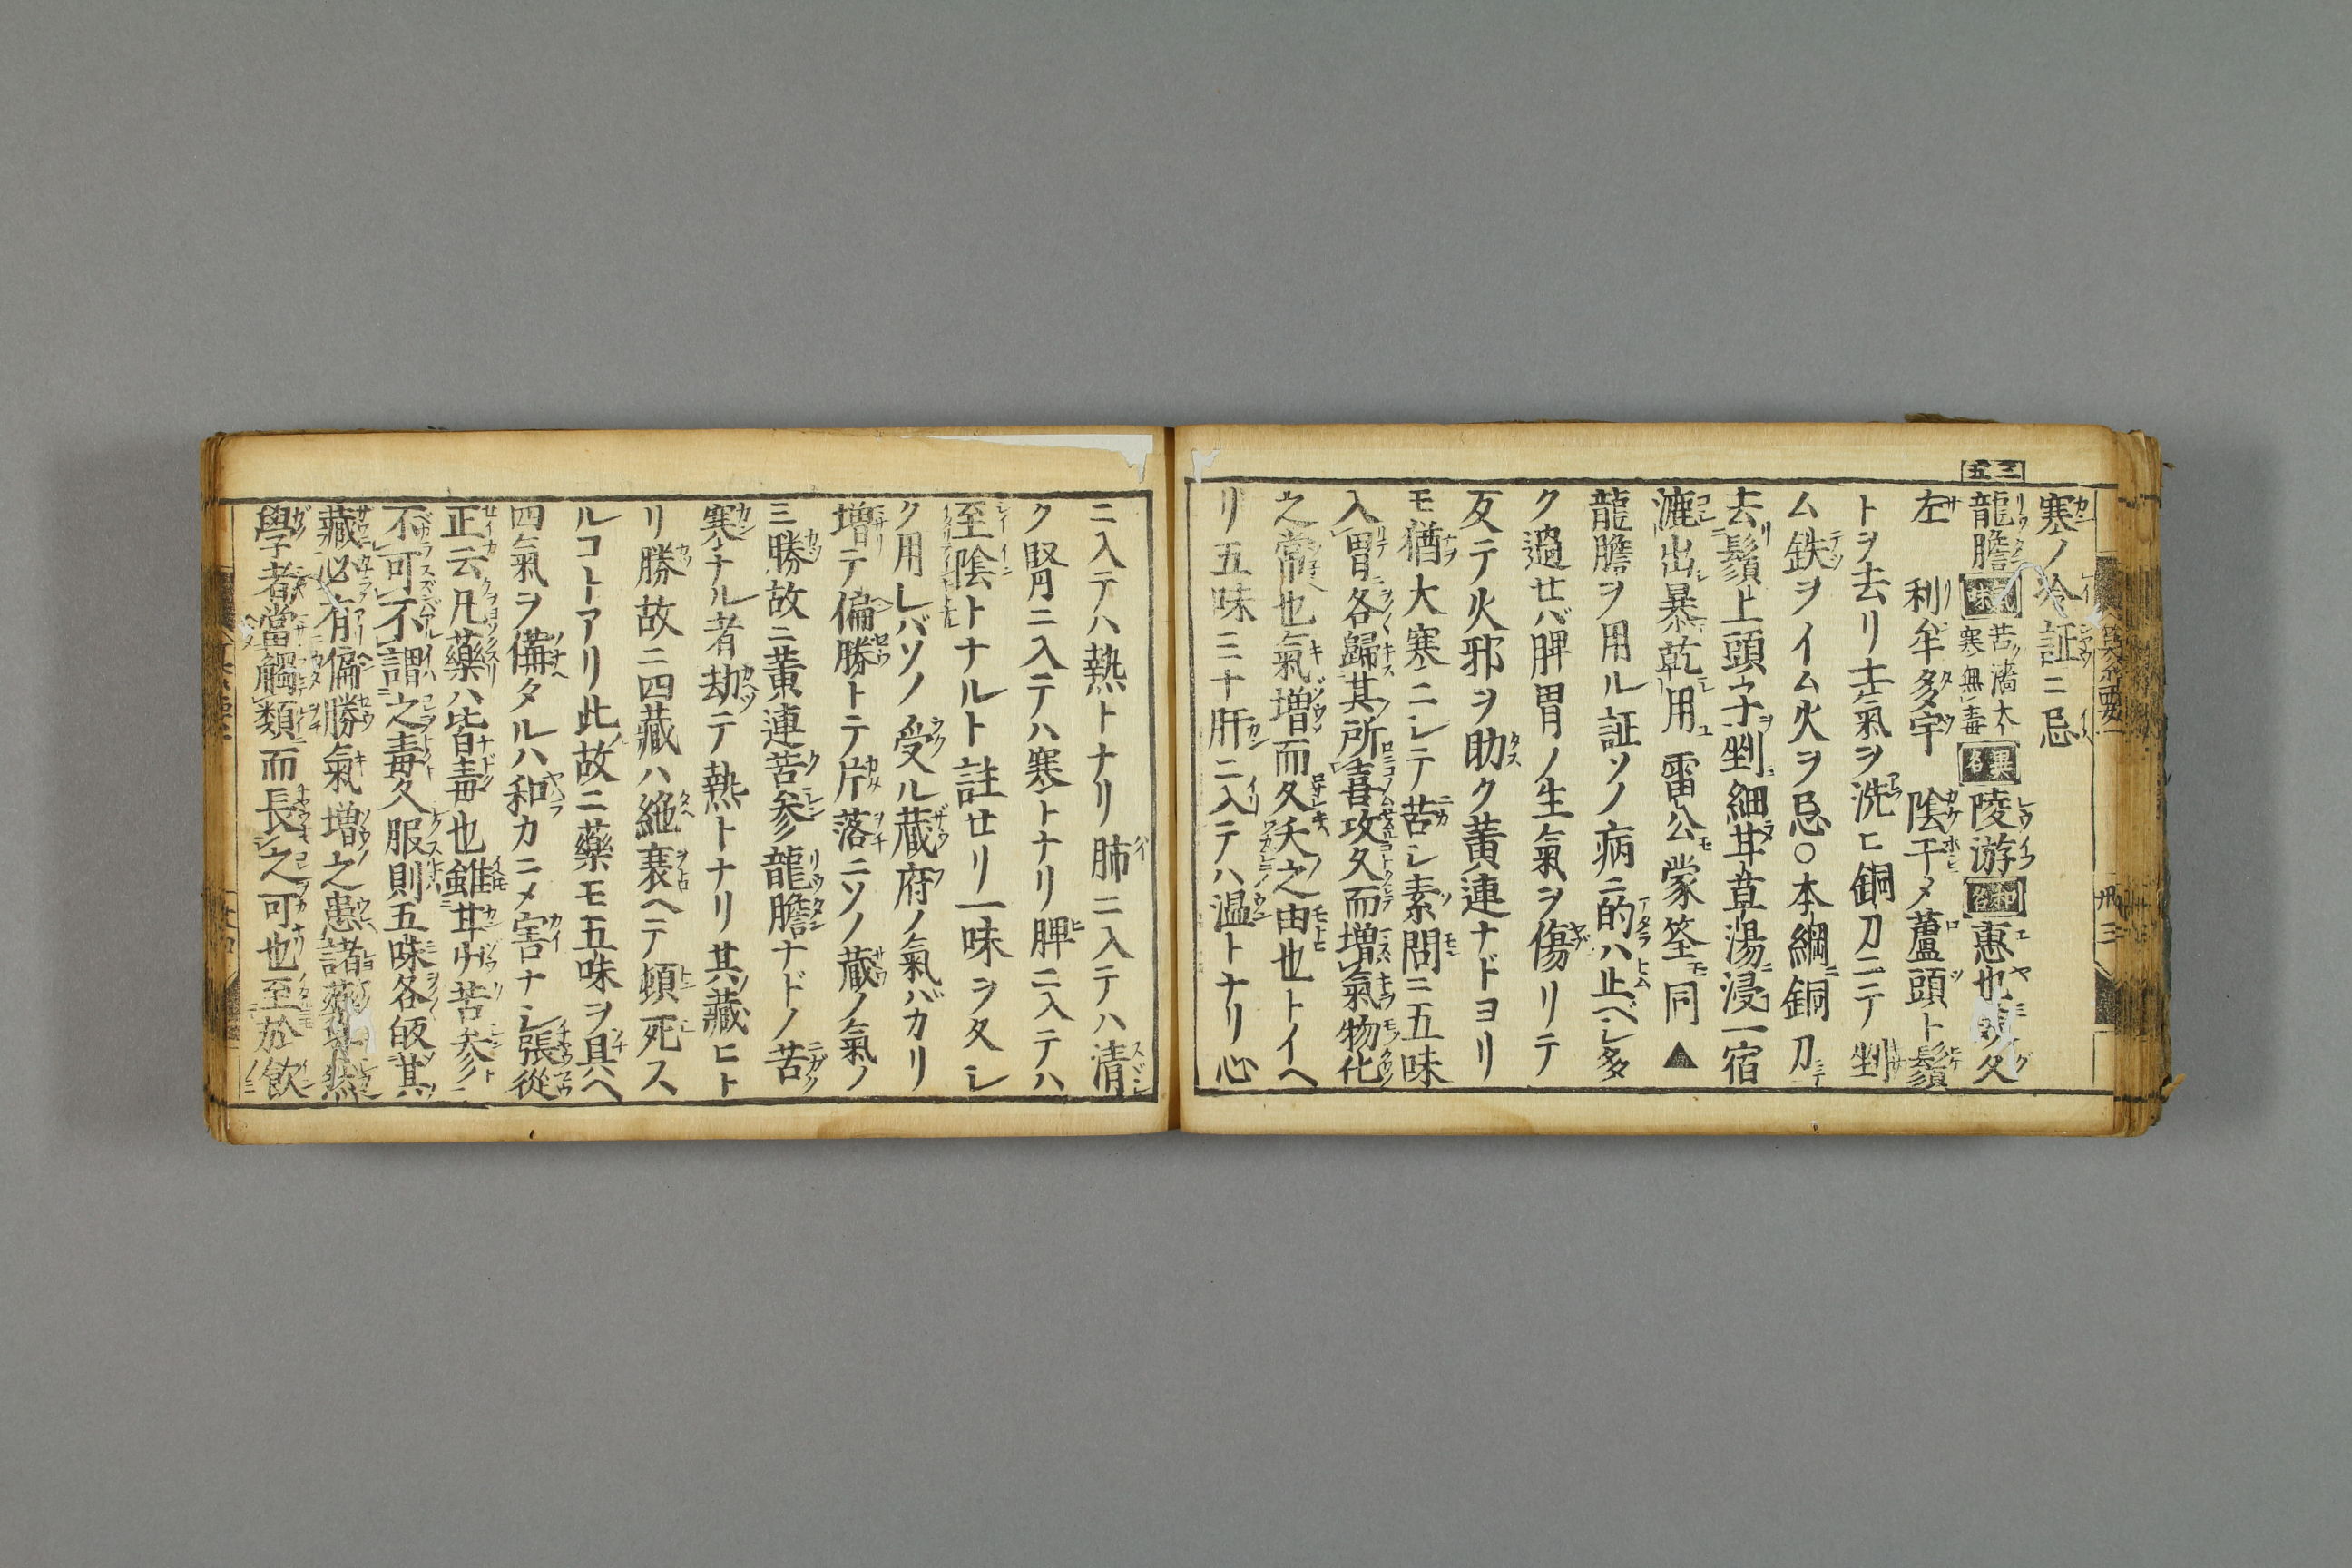 寒ノ冷証ニ忌
三五
龍膽 氣味 苦濇大寒無毒 異名 陵游 和名 惠也美久
左 利牟多宇 陰干メ蘆頭ト鬚
トヲ去リ土氣ヲ洗ヒ銅刀ニテ剉
ム鉄ヲイム火ヲ忌○本綱銅刀
去鬚上頭子剉細甘草湯浸一宿
漉出暴乾用 雷公 蒙筌同▲
龍膽ヲ用ル証ソノ病ニ的ハ止ベシ多
ク過セバ脾胃ノ生氣ヲ傷リテ
反テ火邪ヲ助ク黄連ナドヨリ
モ猶大寒ニシテ苦シ素問ニ五味
入胃各歸其所喜攻久而増氣物化
之常也氣増而久夭之由也トイヘ
リ五味ミナ肝ニ入テハ温トナリ心
ニ入テハ熱トナリ肺ニ入テハ清
ク腎ニ入テハ寒トナリ脾ニ入テハ
至陰トナルト註セリ一味ヲ久シ
ク用レバソノ受ル蔵府ノ氣バカリ
増テ偏勝トテ片落ニソノ蔵ノ氣ノ
ミ勝故ニ黄連苦参龍膽ナドノ苦
寒ナル者劫テ熱トナリ其蔵ヒト
リ勝故ニ四藏ハ絶衰ヘテ頓死ス
ルコトアリ此故ニ藥モ五味ヲ具ヘ
四氣ヲ備タルハ和カニメ害ナシ張從
正云凡藥ハ皆毒也雖甘艸苦参
不可不謂之毒久服則五味各皈其
藏必有偏勝氣増之患諸藥皆然
學者當觸類而長之可也至於飲